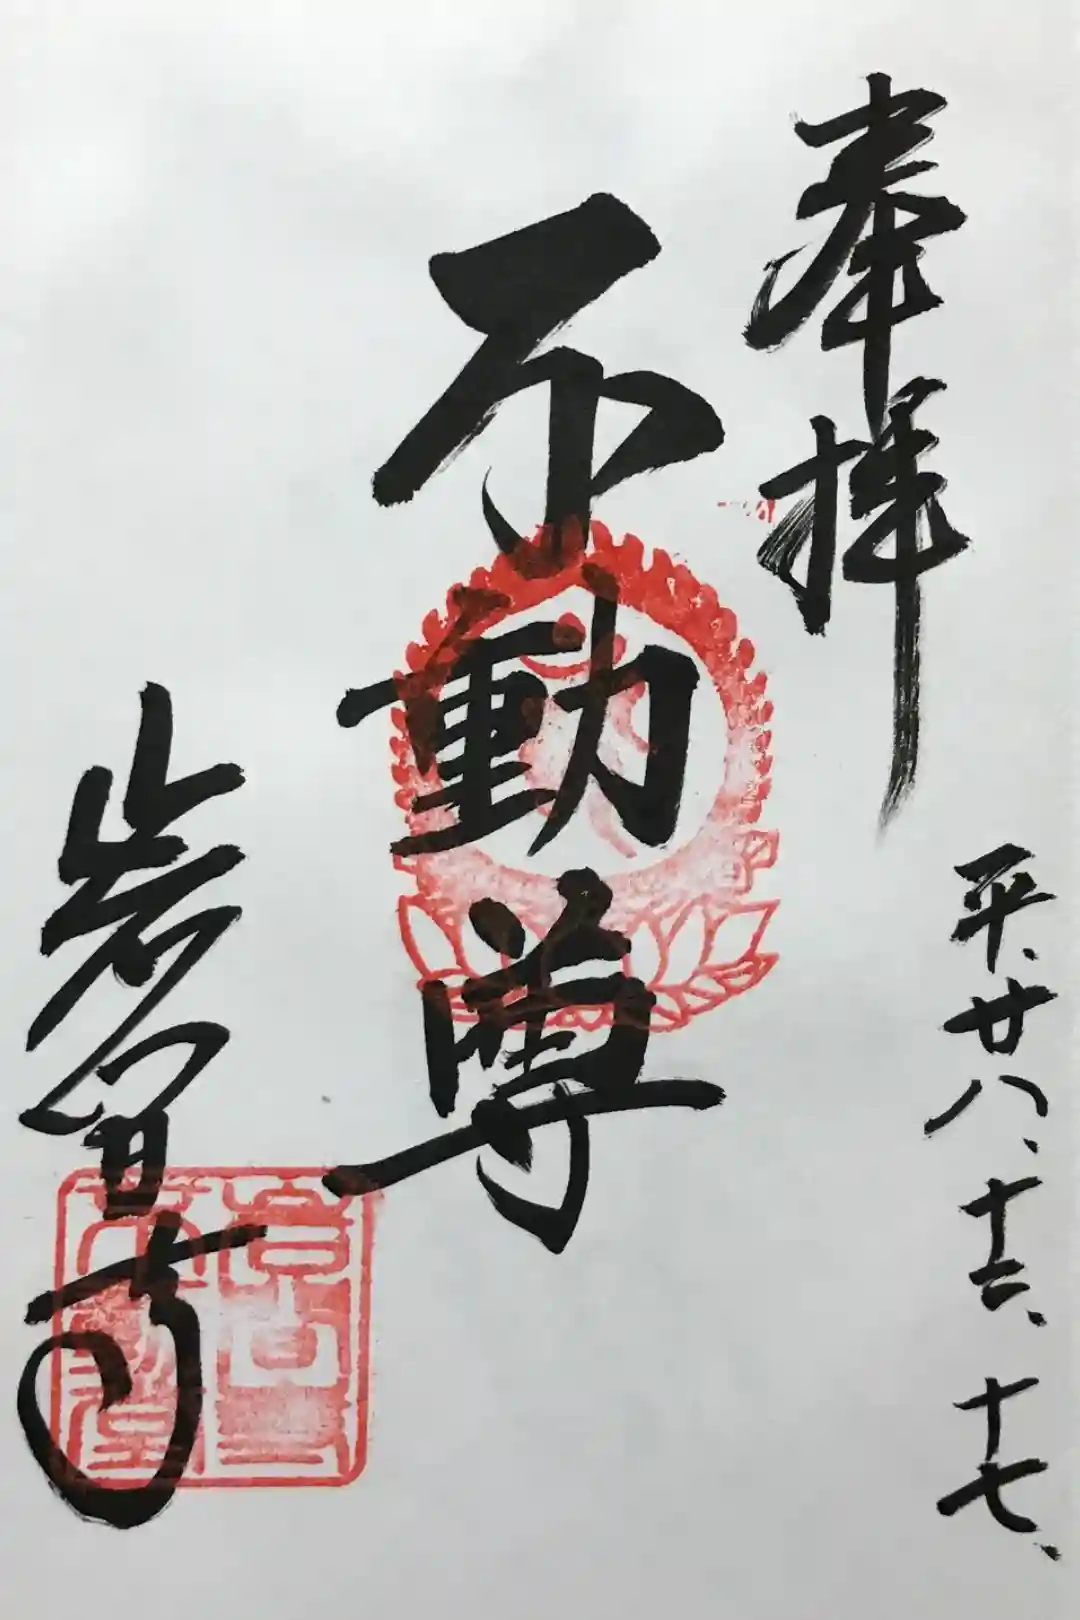 奉拝
平、廿八、十二、十七、
不動尊
岩習寺